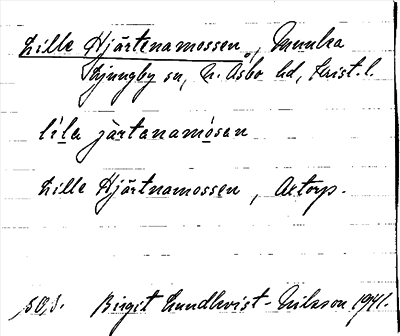 Lille Hjärtenamossen, Munka
Ljungby sn, N. Åsbo hd, Krist. l.
lila jàrtanamòsen
Lille Hjärtnamossen, Axtorp.
Birgit Lundkvist-Nilsson 1941.